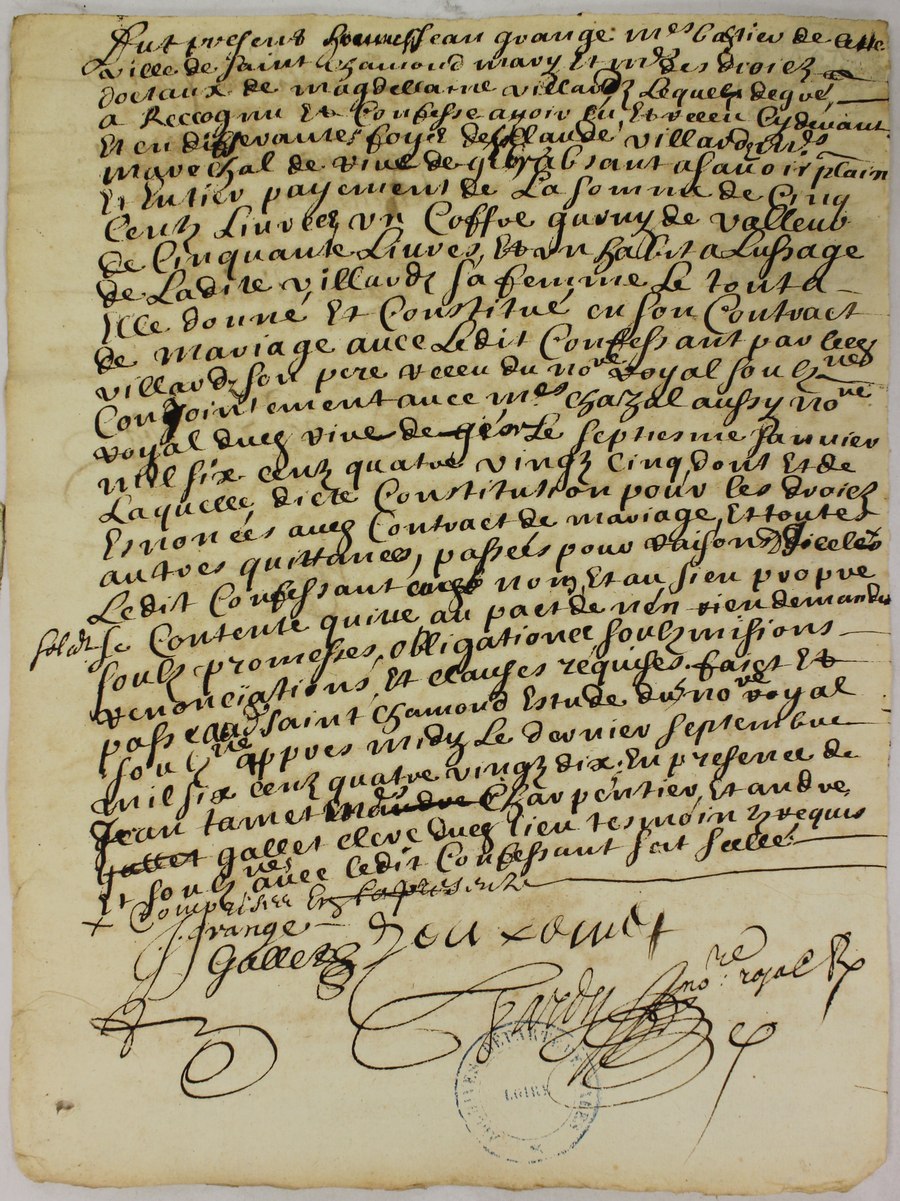 Fut present honneste Jean grange me bastier de cette
ville de saint chamond mary et me des droicz
doctaux de magdellaine villard, lequel de gré,
a reccognu et confesse avoir eu et receu cy devant
Et en differantes foys de Claude villard me
mareschal de rive de gier absant a sauoir plain
Et Entier payement de La somme de Cinq
Centz Liures un Coffre garny de valleur
de Cinquante Liures, et un habit a Lussage
de Ladite villard sa femme Le tout a
Elle donné et Constitué en son Contract
de mariage auec Ledit Confessant par
villard son pere receu du nore royal soubz nes
Conjointement auec me chazal aussy nore
royal dud rive de gier Le septiesme januier
mil six centz quatre vingtz cinq, dont Et de
Laquelle dicte Constitution pour les droicz
Esnoncés aud Contract de mariage, Et toutes
autres quittances, passées pour raison diceles
Ledit Confessant aud nom, Et au sien propre
se Contente quitte au pact de nen rien demander
soubz promesses, obligationes soubzmisions
renonciations, Et clauses requises faict Et
passé aud saint chamond Estude du nore royal
soubne appres midy Le dernier septembre
mil six centz quatre vingtz dix, En presence de
Jean tamet me Charpentier, Et andre
gallet gallet clerc dud lieu tesmoins requis
Et soubznes auec ledit Confessant soit scelle
+ Comprise En la presente
J. Grange
Gallet
Jean tamet
nore royal
ARCHIVES DEPARTEMENTALES
LOIRE